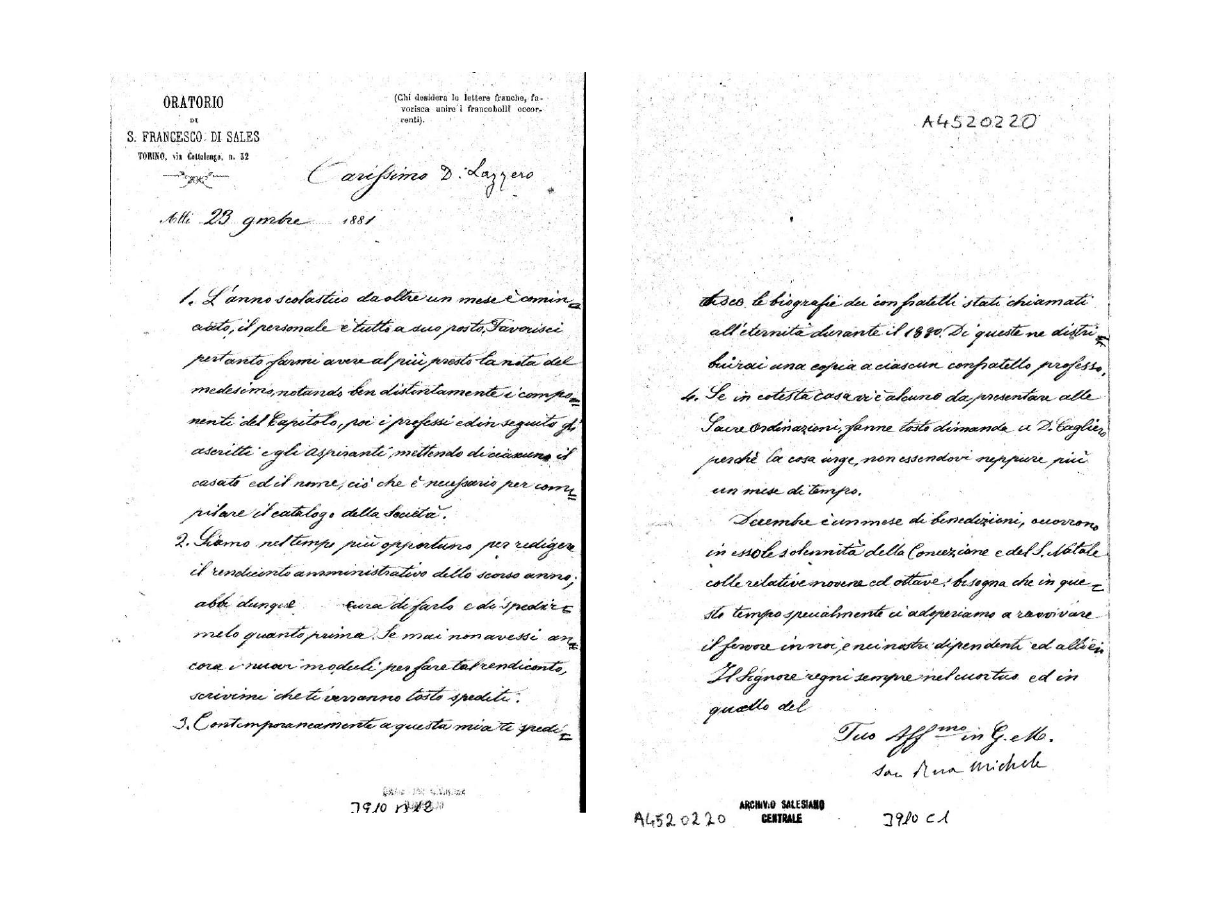 ORATORIO
DI
S. FRANCESCO DI SALES
TORINO, via Cottolengo, n. 32
(Chi desidera le lettere franche, fa-
vorisca unire i francobolli occor-
renti).
Carissimo D. Lazzero
Addì 23 9mbre 1881
1. L'anno scolastico da oltre un mese è comin=
ciato, il personale è tutto a suo posto, Favorisci
pertanto farmi avere al più presto la nota del
medesimo, notando ben distintamente i compo=
nenti del Capitolo, poi i professi ed in seguito gli
ascritti e gli aspiranti, mettendo di ciascuno il
casato ed il nome, ciò che è necessario per com=
pilare il catalogo della Società.
2. Siamo nel tempo più opportuno per redigere
il rendiconto amministrativo dello scorso anno;
abbi dunque cura di farlo e di spedir=
melo quanto prima. Se mai non avessi an=
cora i nuovi moduli per fare tal rendiconto,
scrivimi che ti verranno tosto spediti.
3. Contemporaneamente a questa mia ti spedi=
3910 B12
A4520220
sco le biografie dei confratelli stati chiamati
all'eternità durante il 1880. Di queste ne distri=
buirai una copia a ciascun confratello professo.
4. Se in cotesta casa vi è alcuno da presentare alle
Sacre Ordinazioni, fanne tosto dimanda a D. Cagliero
perchè la cosa urge, non essendovi neppure più
un mese di tempo.
Decembre è un mese di benedizioni, occorrono
in esso le solennità della Concezione e del S. Natale
colle relative novene ed ottave: bisogna che in que=
sto tempo specialmente ci adoperiamo a ravvivare
il fervore in noi, e nei nostri dipendenti ed allievi
Il Signore regni sempre nel cuor tuo ed in
quello del
Tuo Affmo in G. e M.
Sac. Rua Michele
A4520220
ARCHIVIO SALESIANO
CENTRALE
3910 C1